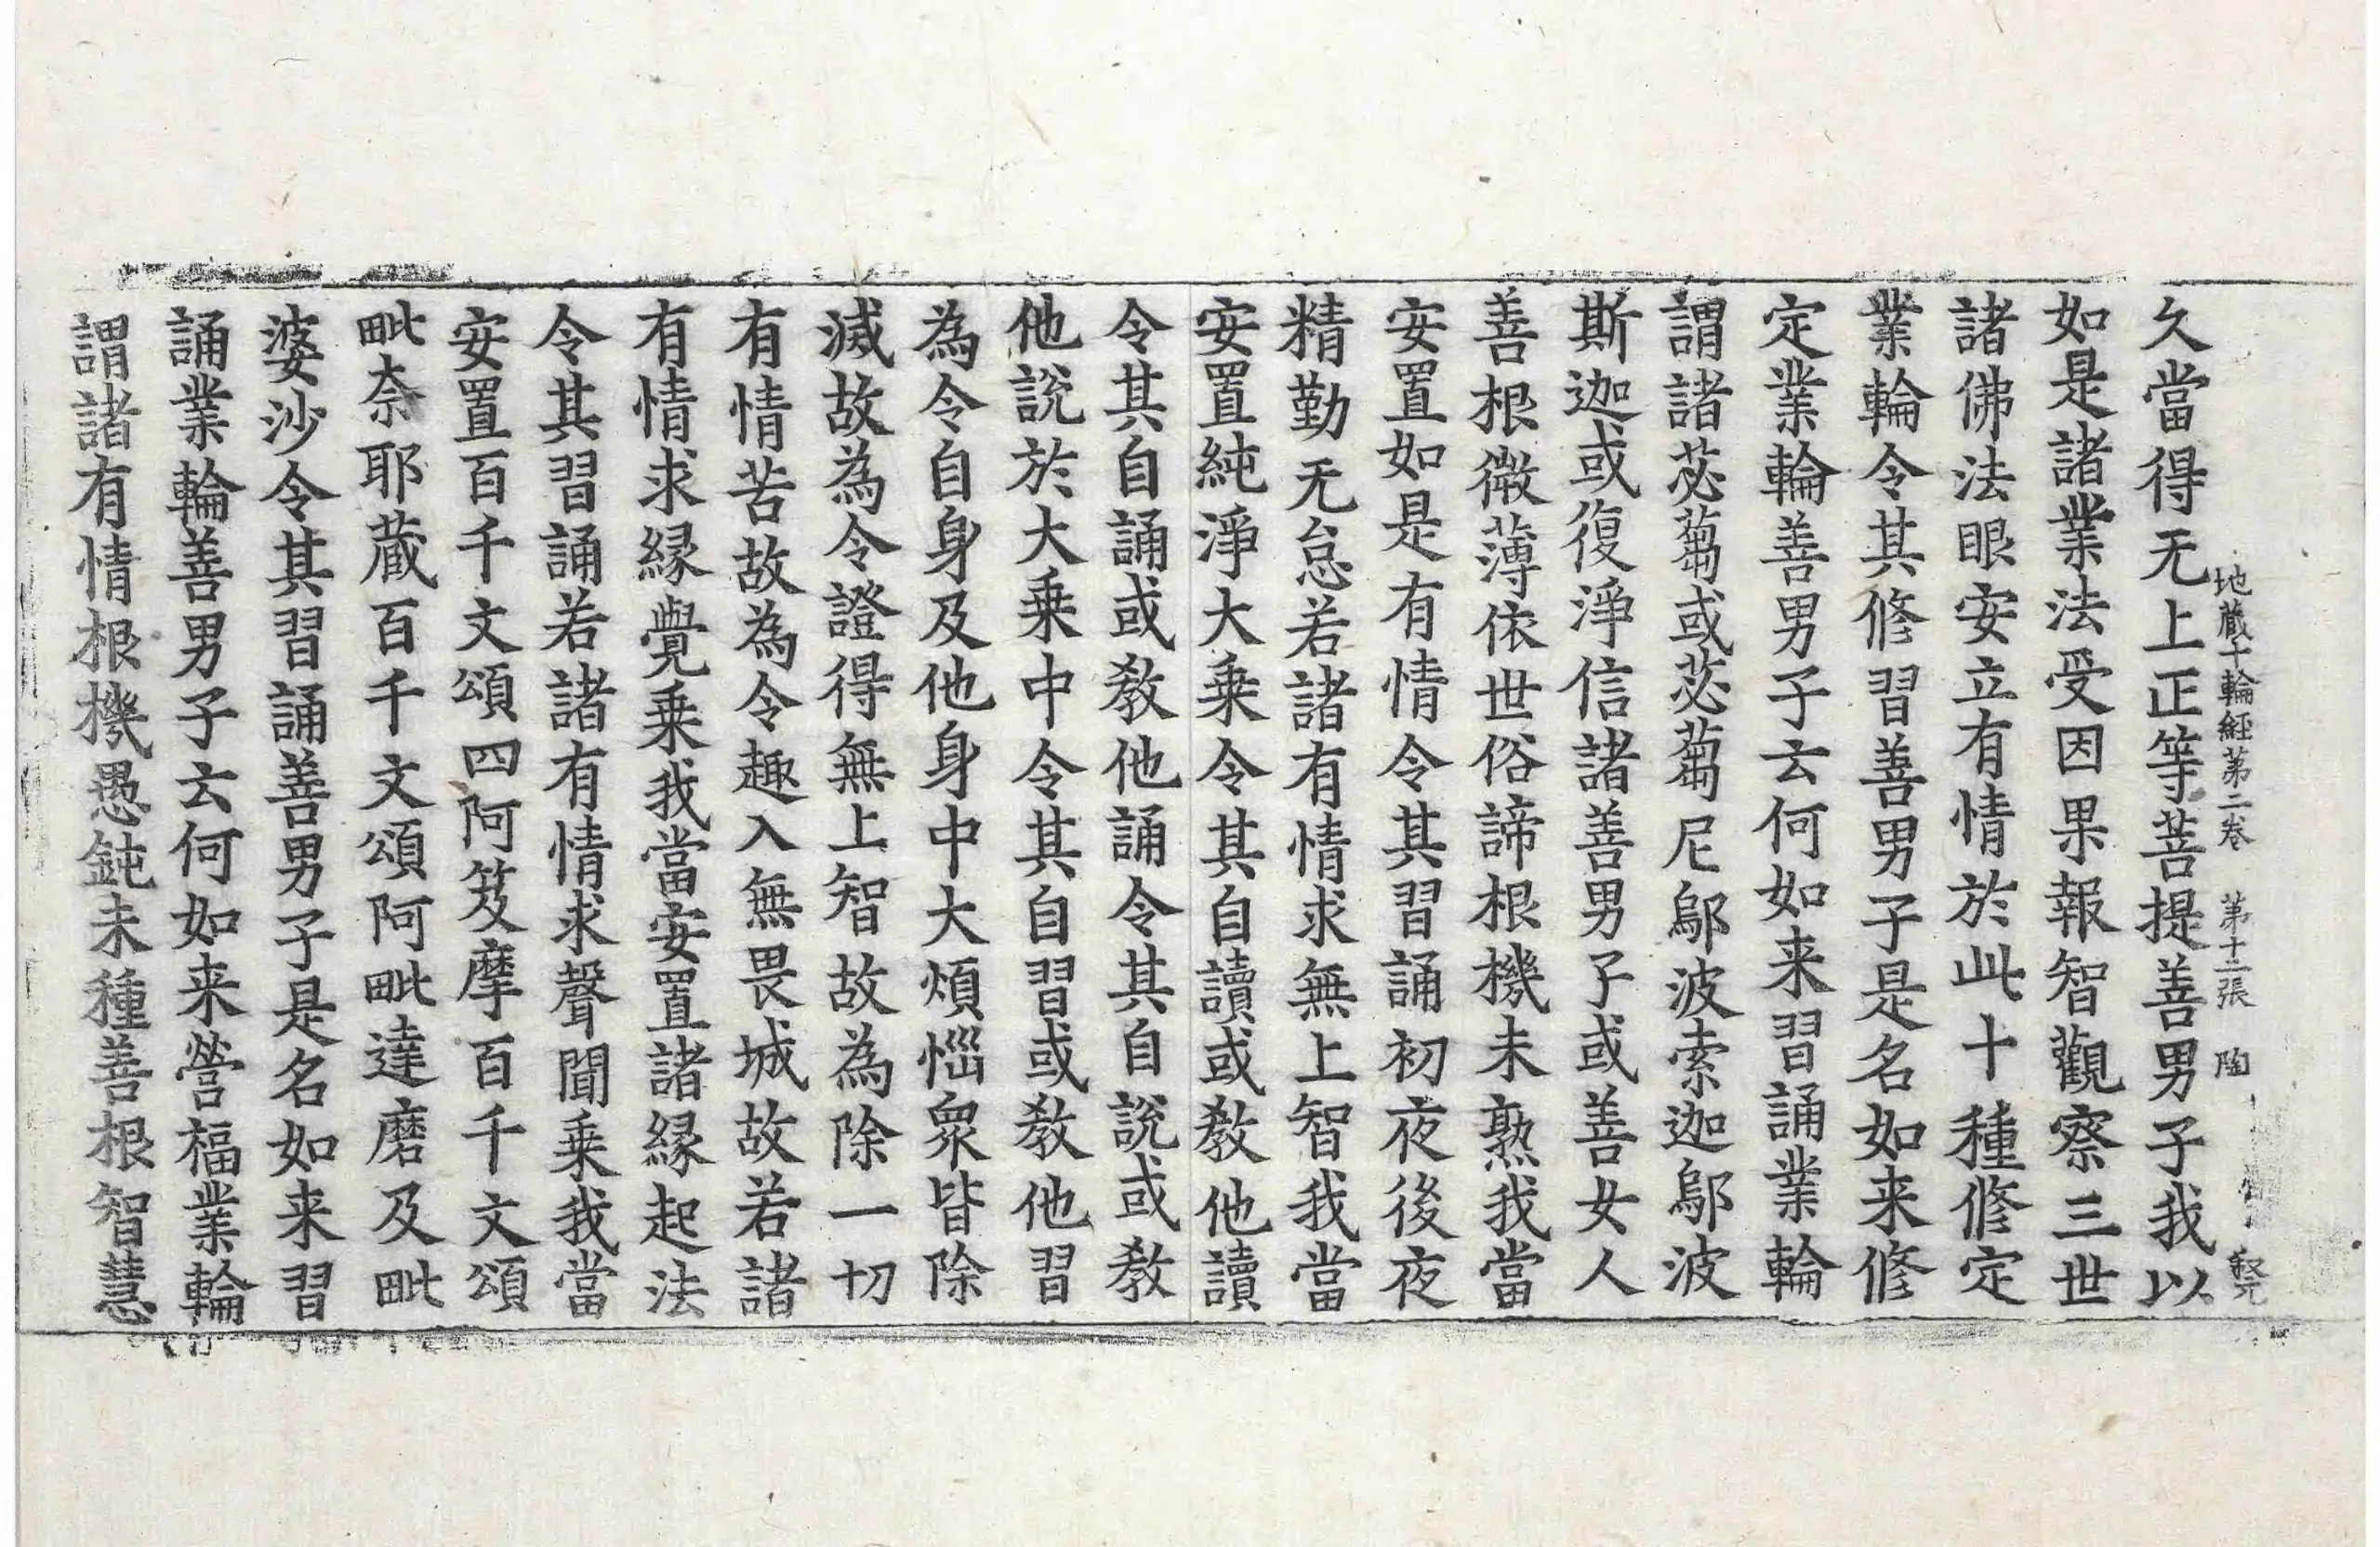 地蔵十輪經第二卷 第十二張 陶
久當得无上正等菩提善男子我以
如是諸業法受因果報智觀察三世
諸佛法眼安立有情於此十種修定
業輪令其修習善男子是名如来修
定業輪善男子云何如来習誦業輪
謂諸苾蒭或苾蒭尼鄔波索迦鄔波
斯迦或復淨信諸善男子或善女人
善根微薄依世俗諦根機未熟我當
安置如是有情令其習誦初夜後夜
精勤无怠若諸有情求無上智我當
安置純淨大乗令其自讀或教他讀
令其自誦或教他誦令其自說或教
他說於大乗中令其自習或教他習
為令自身及他身中大煩惱衆皆除
滅故為令證得無上智故為除一切
有情苦故為令趣入無畏城故若諸
有情求縁覺乗我當安置諸縁起法
令其習誦若諸有情求聲聞乗我當
安置百千文頌四阿笈摩百千文頌
毗奈耶蔵百千文頌阿毗達磨及毗
婆沙令其習誦善男子是名如来習
誦業輪善男子云何如来營福業輪
謂諸有情根機愚鈍未種善根智慧